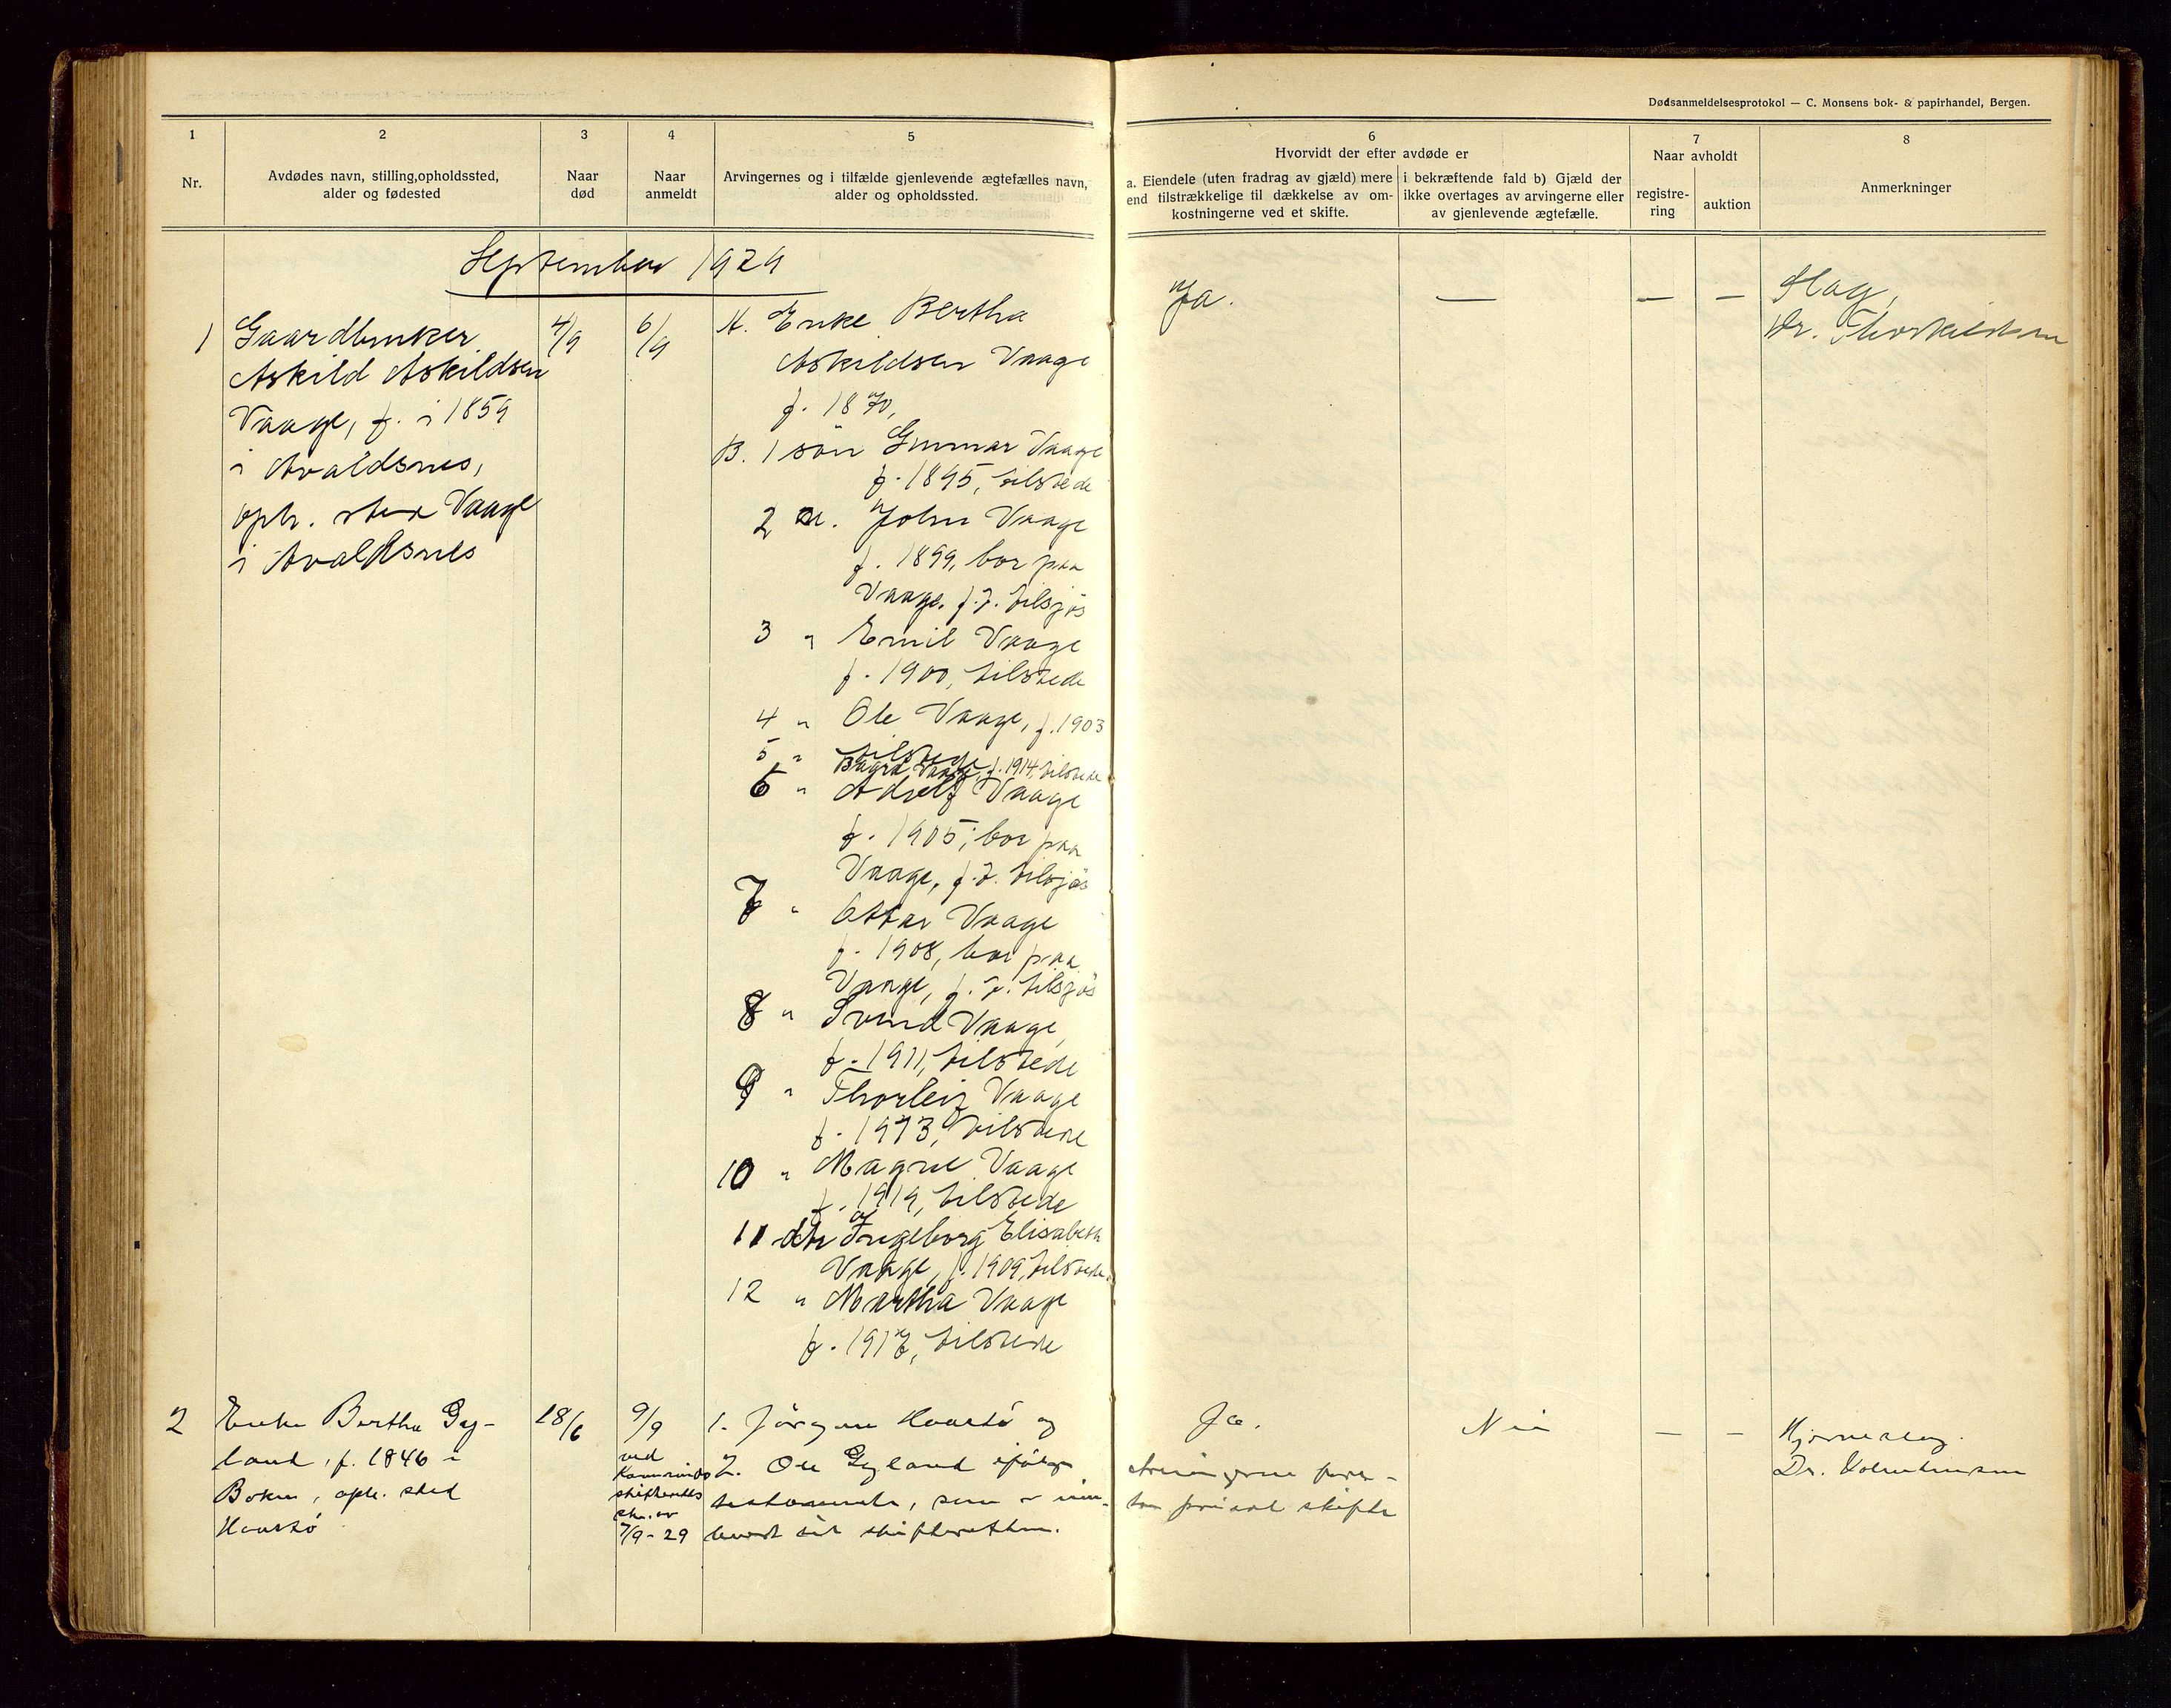 Dødsanmeldelsesprotokol — C. Monsens bok- & papirhandel, Bergen.
1
Nr.
2
Avdødes navn, stilling, opholdssted,
alder og fødested
3
Naar
død
4
Naar
anmeldt
5
Arvingernes og i tilfælde gjenlevende ægtefælles navn,
alder og opholdssted.
6
Hvorvidt der efter avdøde er
a. Eiendele (uten fradrag av gjæld) mere
end tilstrækkelige til dækkelse av om-
kostningerne ved et skifte.
i bekræftende fald b) Gjæld der
ikke overtages av arvingerne eller
av gjenlevende ægtefælle.
7
Naar avholdt
registre-
ring
auktion
8
Anmerkninger
September 1929
1
Gaardbruker
Askild Askildsen
Vaage, f. i 1859
i Avaldsnes,
oph. sted Vaage
i Avaldsnes
4/9
6/9
A. Enke Bertha
Askildsen Vaage
f. 1870,
B. 1 sön Gunnar Vaage
f. 1895, tilstede
2 " John Vaage
f. 1899, bor paa
Vaage, f.t. tilsjös
3 " Emil Vaage
f. 1900, tilstede
4 " Ole Vaage, f. 1903
tilstede
5 " Vaage, f. 1914, tilstede
6 " Adolf Vaage
f. 1905, bor paa
Vaage, f.t. tilsjös
7 " Ottar Vaage
f. 1908, bor paa
Vaage, f.t. tilsjös
8 " Svend Vaage,
f. 1911, tilstede
9 " Thorleif Vaage
f. 1913, tilstede
10 " Magne Vaage
f. 1919, tilstede
11 dtr Ingeborg Elisabeth
Vaage, f. 1909, tilstede.
12 " Martha Vaage
f. 1917, tilstede
Ja.
—
—
—
Slag,
Dr. Thorkildsen
2
Enke Bertha Gy-
land, f. 1846 i
Bokn, oph. sted
Haastö
18/6
9/9
ved
skifteretts
skr. av
7/9-29
1. Jörgen Haastö og
2. Ole Gyland ifölge
testamente, som er inn-
levert til skifteretten.
Ja.
Arvingerne fore-
tar privat skifte
Nei
—
—
Hjerneslag.
Dr.